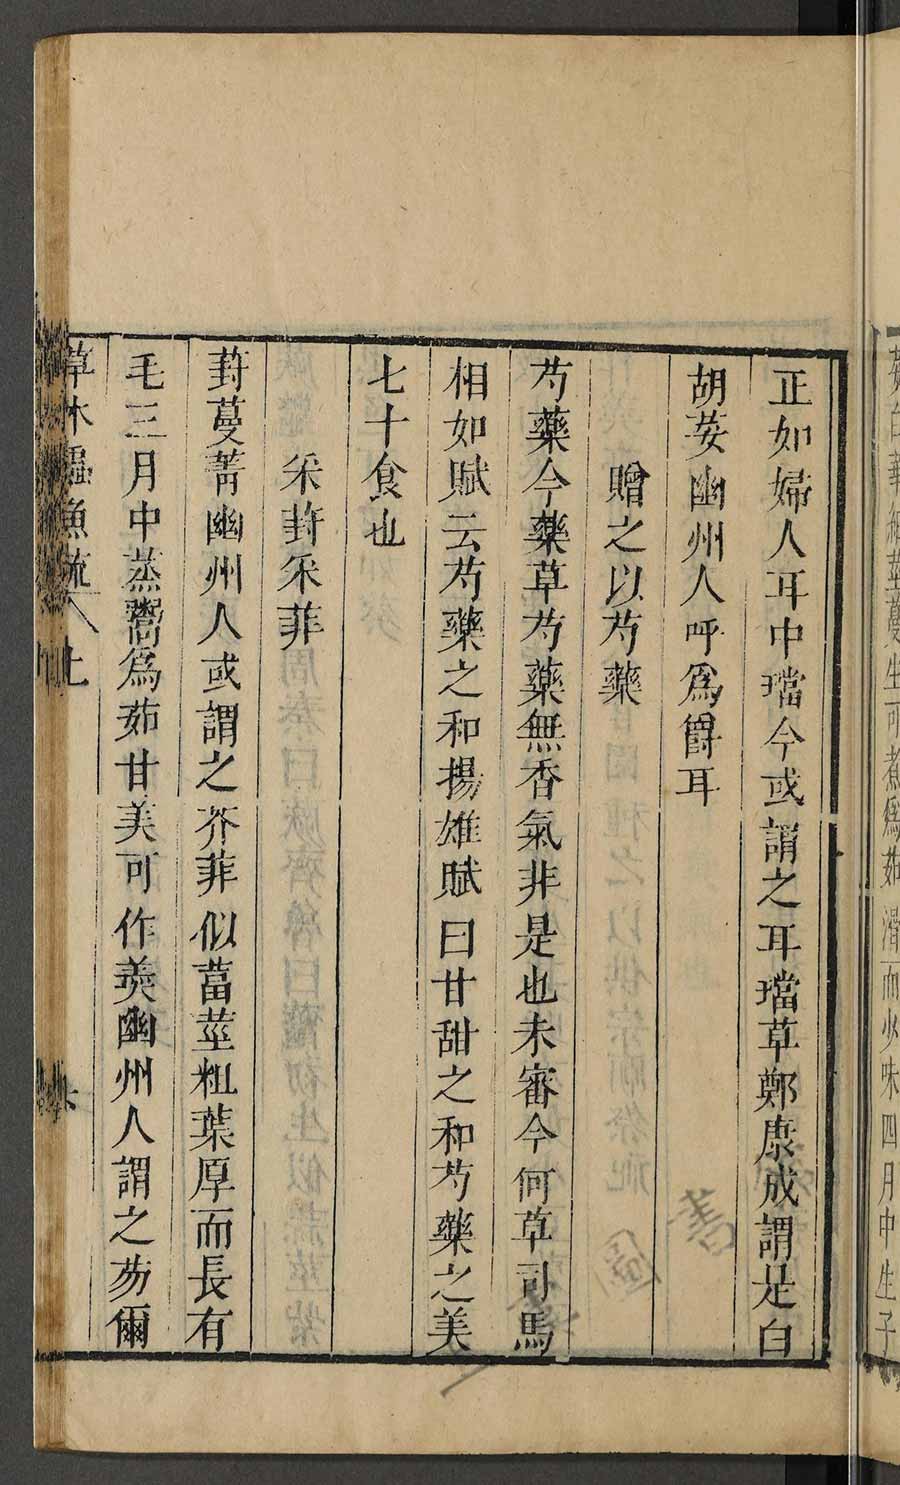 茹白華細莖蔓生可煮爲茹滑而少味四月中生子
正如婦人耳中璫今或謂之耳璫草鄭康成謂是白
胡荽幽州人呼爲爵耳
贈之以芍藥
芍藥今藥草芍藥無香氣非是也未審今何草司馬
相如賦云芍藥之和揚雄賦曰甘甜之和芍藥之美
七十食也
采葑采菲
葑蔓菁幽州人或謂之芥菲似葍莖粗葉厚而長有
毛三月中蒸鬻爲茹甘美可作羹幽州人謂之芴爾
草木蟲魚疏 上